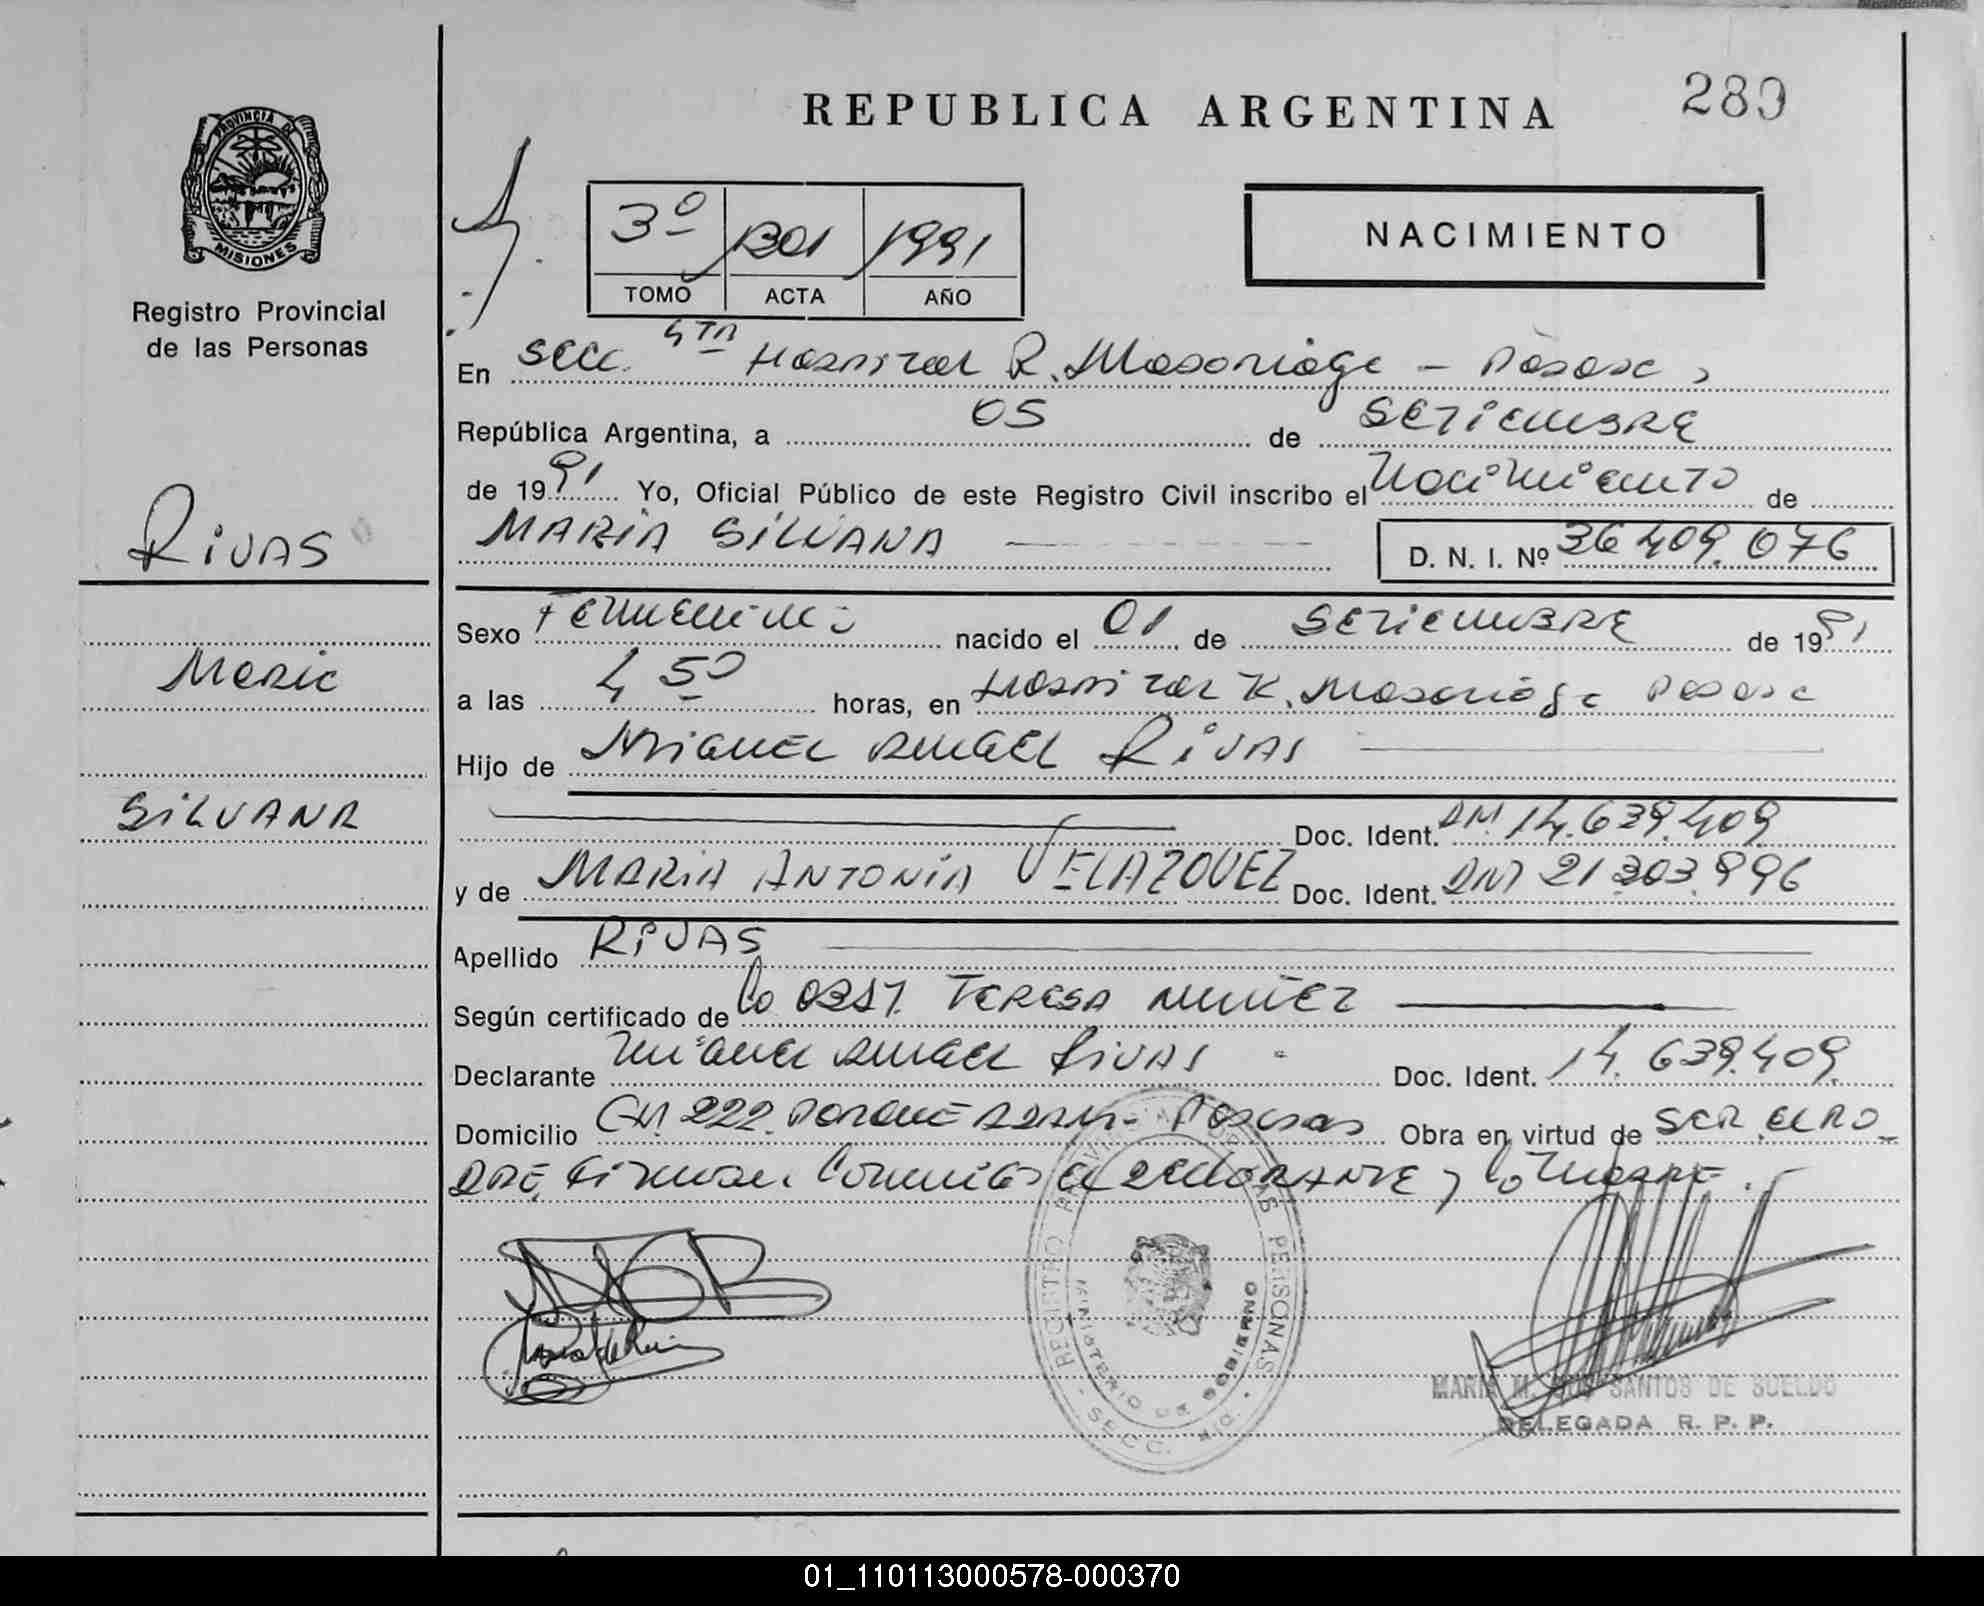 289
REPUBLICA ARGENTINA
PROVINCIA DE
MISIONES
Registro Provincial
de las Personas
3º 1301 1991
TOMO ACTA AÑO
NACIMIENTO
En Secc. 4ta Hospital R. Madariaga - Posadas,
República Argentina, a 05 de SETIEMBRE
de 1991 Yo, Oficial Público de este Registro Civil inscribo el Nacimiento de
RIVAS
MARIA SILVANA D. N. I. Nº 36409.076
Sexo Femenino nacido el 01 de SETIEMBRE de 1991
Maria
a las 4 50 horas, en Hospital R. Madariaga Posadas
Hijo de MIGUEL ANGEL RIVAS
SILVANA
Doc. Ident. DNI. 14.639.409
y de MARIA ANTONIA VELAZQUEZ Doc. Ident. DNI 21303.996
Apellido RIVAS
Según certificado de la OBST. TERESA NUÑEZ
Declarante Miguel Angel Rivas Doc. Ident. 14.639.409
Domicilio CH. 222. Parque Adam - Posadas Obra en virtud de SER EL PA-
DRE, Firman. Conmigo el declarante y la madre.
REGISTRO PROVINCIAL DE LAS PERSONAS
MINISTERIO DE GOBIERNO
SECC.
MARIA M. DOS SANTOS DE SUELDO
DELEGADA R. P. P.
01_110113000578-000370